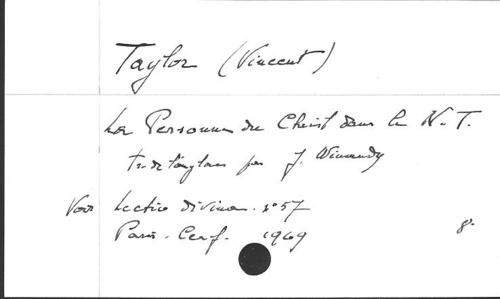 Taylor (Vincent)
La Personne du Christ dans le N.T.
tr. de l'anglais par J. Winandy
Voir Lectio divina. n° 57
Paris - Cerf. 1969 8°